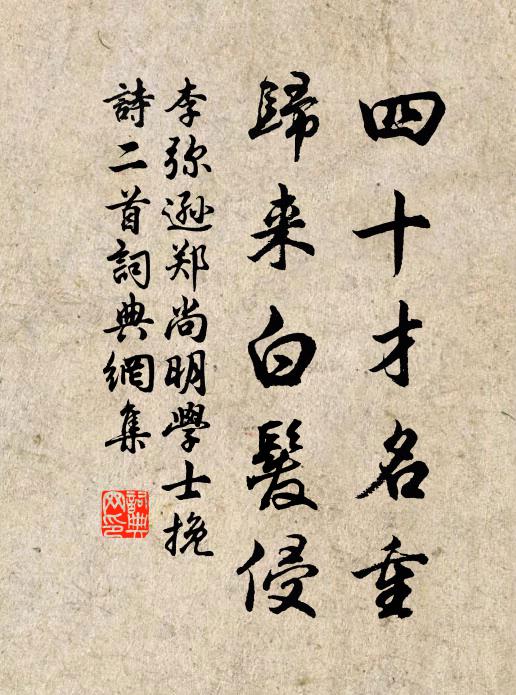 四十才名重
歸来白髮侵
李弥遜郑尚明學士挽
詩二首詞典網集
詞典网印